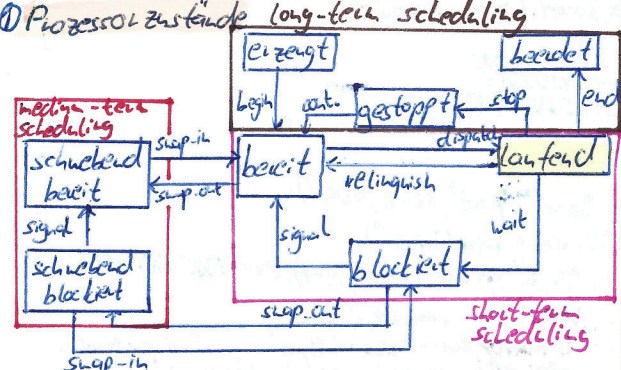 ① Prozessorzustände
long-term scheduling
erzeugt
beendet
begin
cont.
gestoppt
stop
end
medium-term
scheduling
swap-in
dispatch
schwebend
bereit
bereit
laufend
swap-out
relinquish
signal
signal
wait
schwebend
blockiert
blockiert
swap-out
short-term
scheduling
swap-in